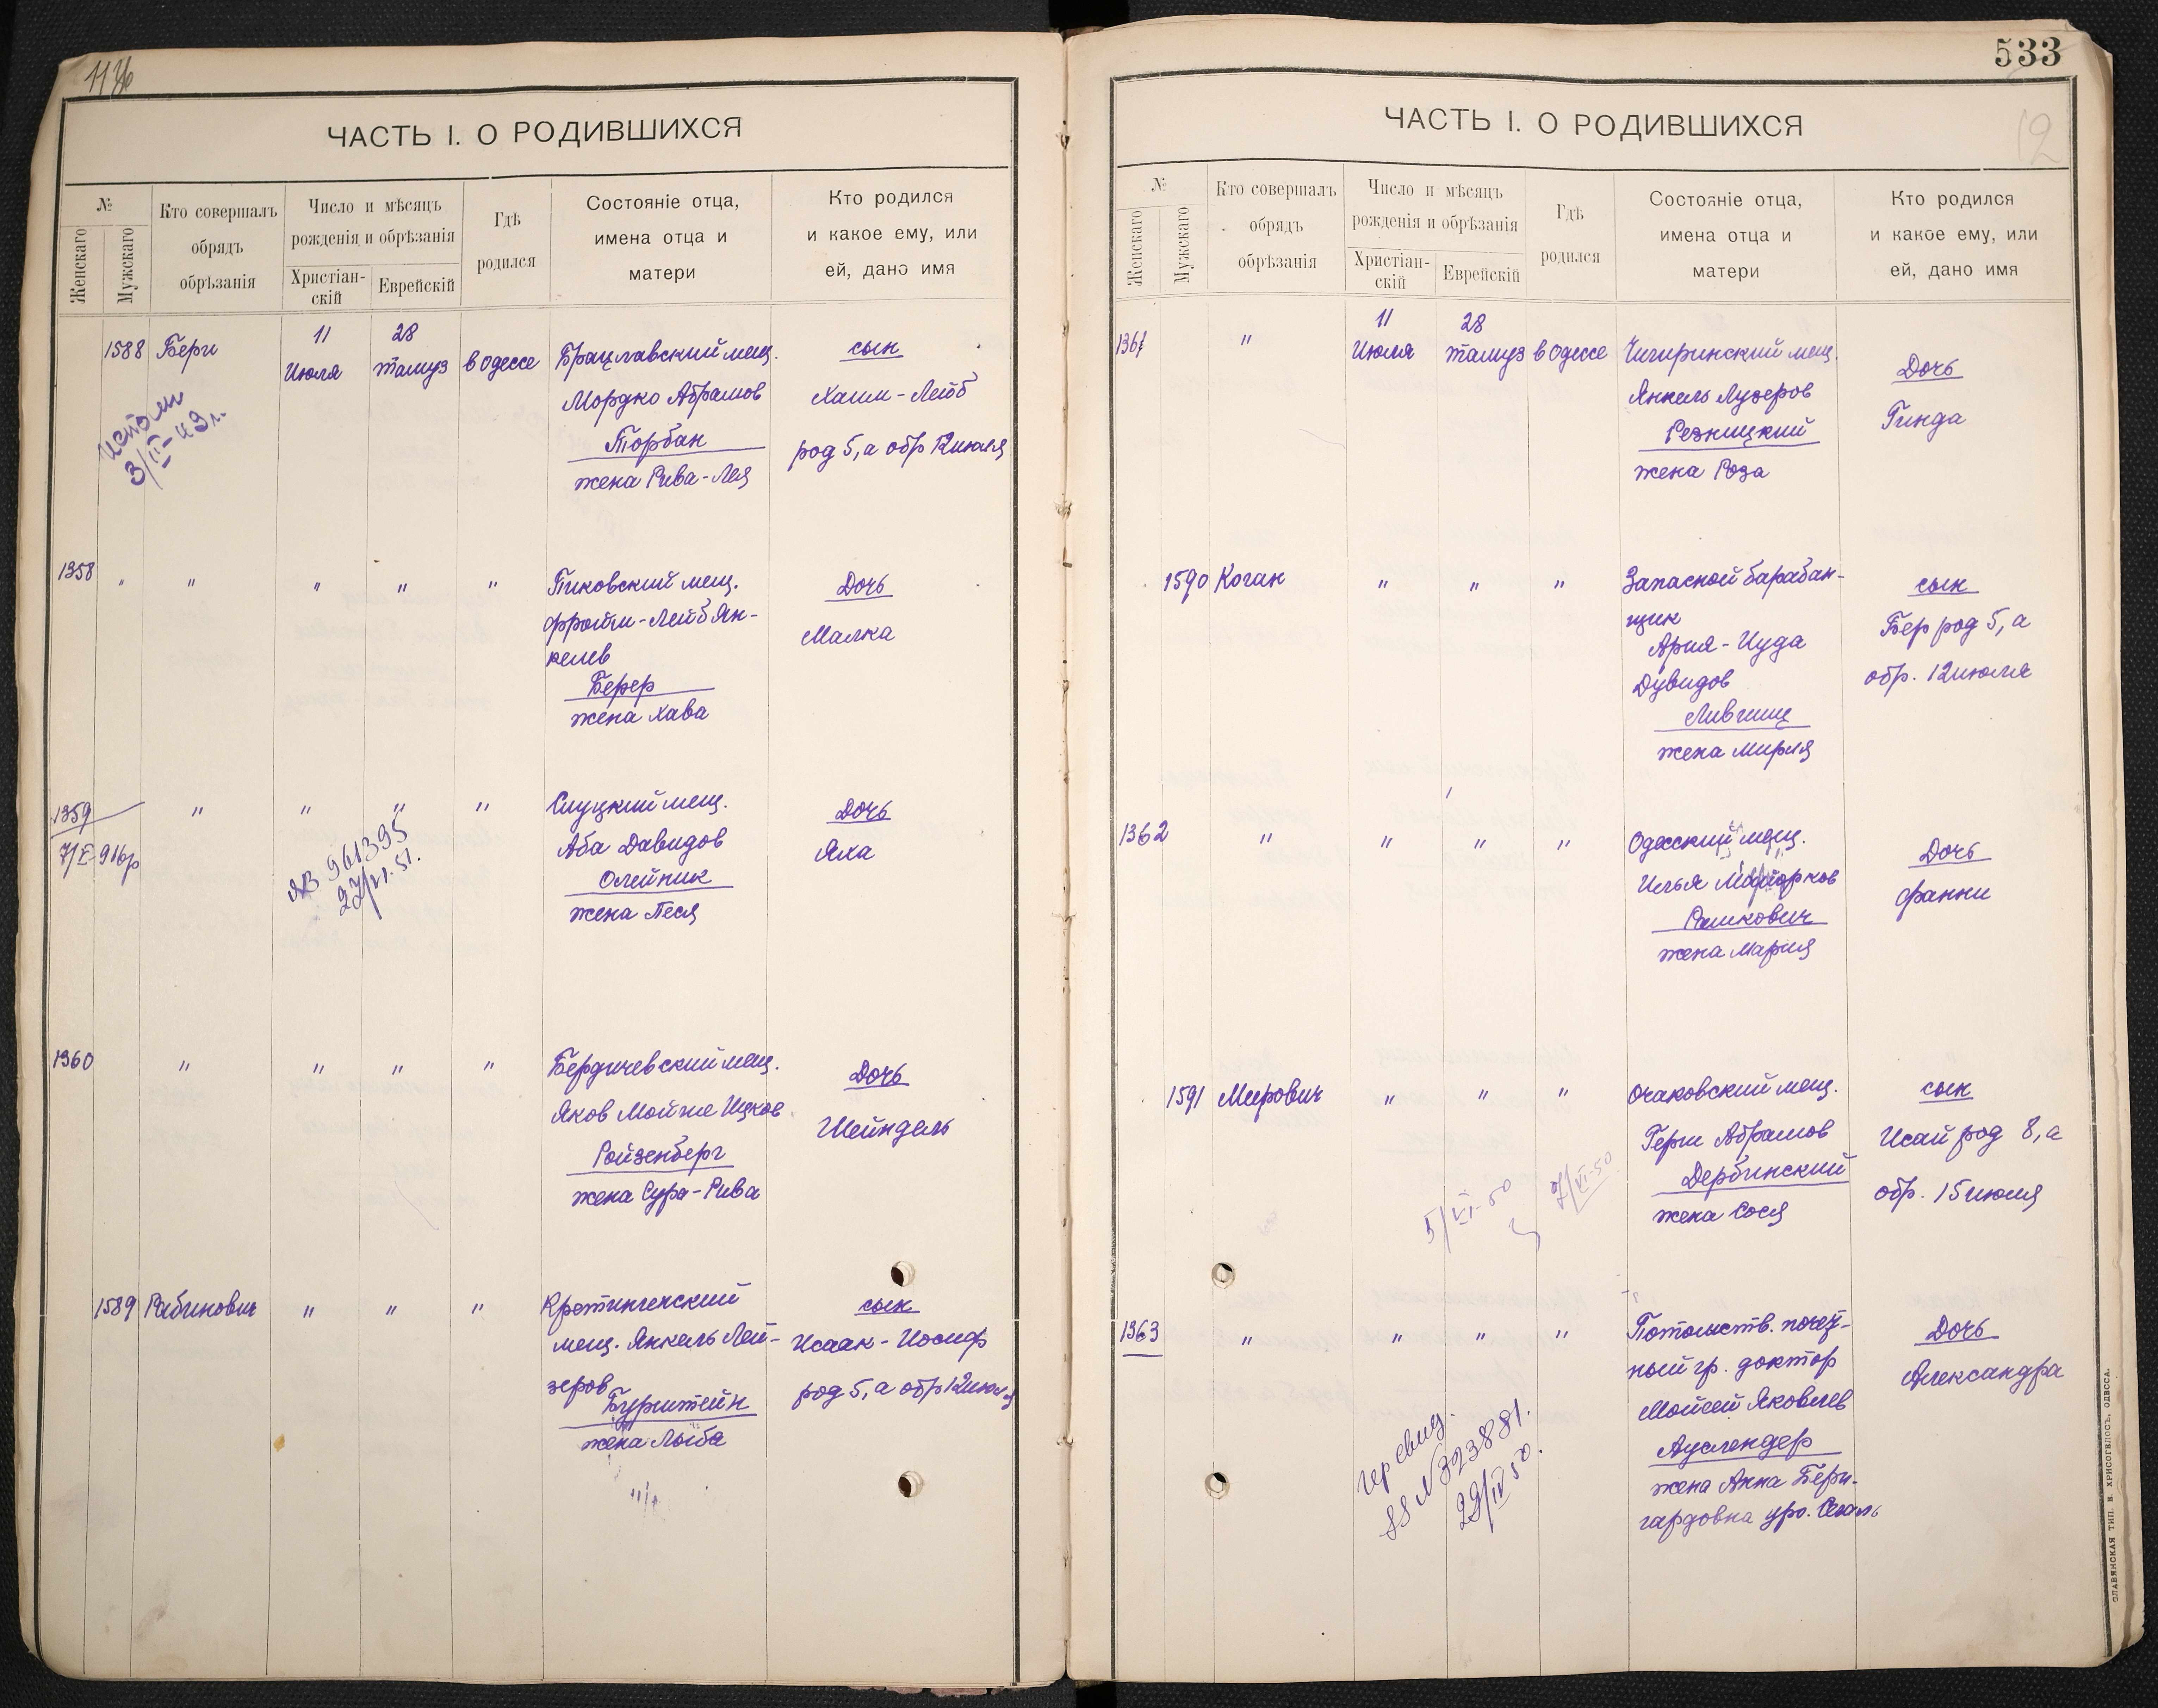 ЧАСТЬ I. О РОДИВШИХСЯ
№
Женскаго
Мужскаго
Кто совершалъ
обрядъ
обрѣзанія
Число и мѣсяцъ
рожденія и обрѣзанія
Христіан-
скій
Еврейскій
Гдѣ
родился
Состояніе отца,
имена отца и
матери
Кто родился
и какое ему, или
ей, дано имя
1588 Берг
11
Июля
28
тамуз
в Одессе
Брацлавский мещ.
Мордко Абрамов
Торбан
жена Рива-Лея
сын
Хаим-Лейб
род 5, а обр 12 июля
3/IV-43 г.
1358 " " " " "
Пиковский мещ.
Фроим-Лейб Ян-
келев
Берер
жена Хава
Дочь
Малка
1359 " " " "
Слуцкий мещ.
Аба Давидов
Олейник
жена Песя
Дочь
Яха
961395
27/VI.51.
1360 " " " "
Бердичевский мещ.
Яков Мойше Ицков
Ройзенберг
жена Сура-Рива
Дочь
Шейндель
1589 Рабинович " " "
Кретингенский
мещ. Янкель Лей-
зеров
Бурштейн
жена Лыба
сын
Исаак-Иосиф
род 5, а обр 12 июля
533
12
ЧАСТЬ I. О РОДИВШИХСЯ
№
Женскаго
Мужскаго
Кто совершалъ
обрядъ
обрѣзанія
Число и мѣсяцъ
рожденія и обрѣзанія
Христіан-
скій
Еврейскій
Гдѣ
родился
Состояніе отца,
имена отца и
матери
Кто родился
и какое ему, или
ей, дано имя
1361 "
11
Июля
28
тамуз
в Одессе
Чигиринский мещ.
Янкель Лузеров
Резницкий
жена Роза
Дочь
Гинда
1590 Коган " " "
Запасной барабан-
щик
Ария-Иуда
Дувидов
Лившиц
жена Мирля
сын
Бер род 5, а
обр. 12 июля
1362 " " " "
Одесский мещ.
Илья
Рашкович
жена Мария
Дочь
Фанни
1591 Мирович " " "
Очаковский мещ.
Герш Абрамов
Дербинский
жена Сося
сын
Исай род 8, а
обр. 15 июля
5/VI-50
7/VI-50
1363 " " " "
Потомств. почет-
ный гр. доктор
Мойсей Яковлев
Ауслендер
жена Анна Берн-
гардовна ур. Сегаль
Дочь
Александра
№ 323881.
29/IV 50.
СЛАВЯНСКАЯ ТИП. В. ХРИСОГЕЛОСЪ, ОДЕССА.